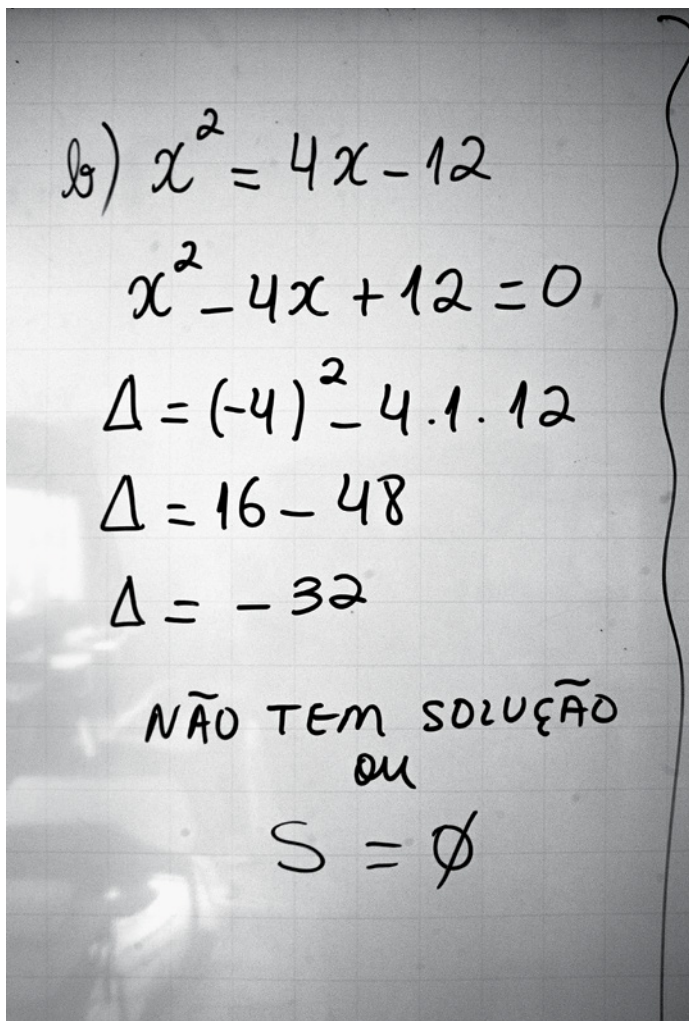 b) x² = 4x - 12
x² - 4x + 12 = 0
Δ = (-4)² - 4.1.12
Δ = 16 - 48
Δ = - 32
NÃO TEM SOLUÇÃO
ou
S = ∅